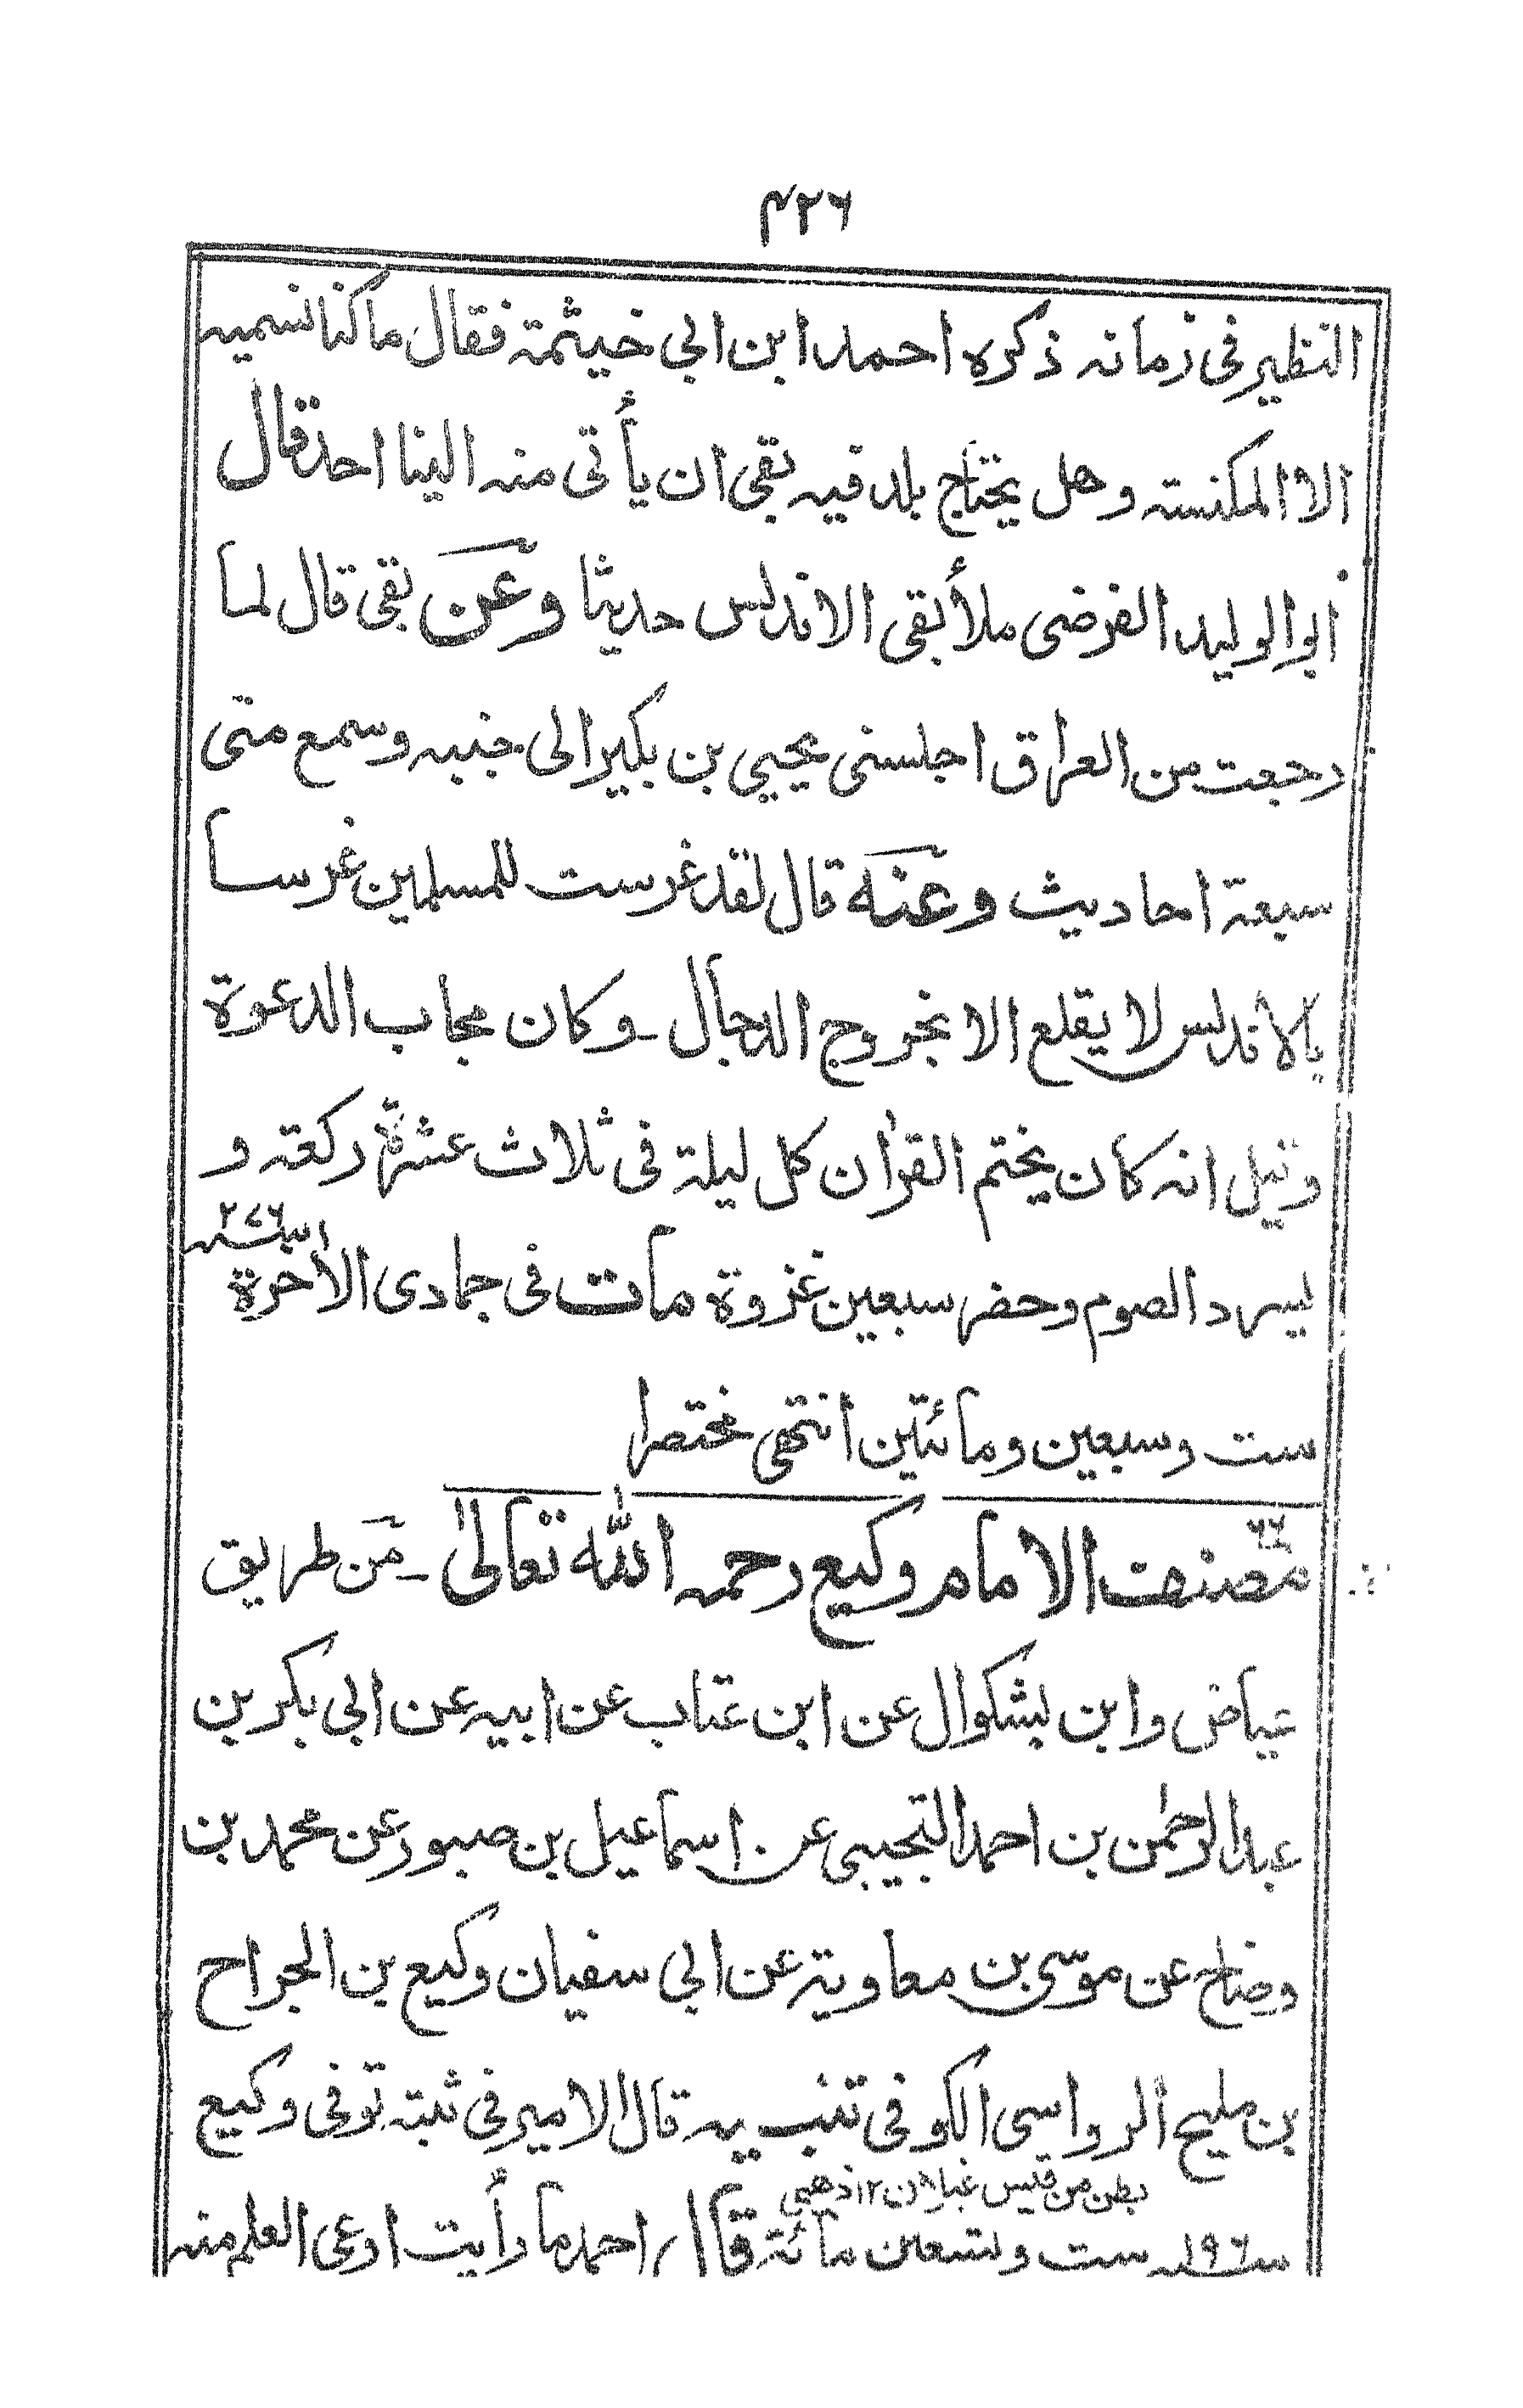 ٤٢٦
النظير فى زمانه ذكره احمد ابن ابى خيثمة فقال ما كنا نسميه
الا المكنسته وهل يحتاج بلد فيه بقى ان يأتى منه الينا احد قال
ابو الوليد الفرضى ملأ بقى الاندلس حديثا وعن بقى قال لما
رجعت من العراق اجلسنى يحيى بن بكير الى جنبه وسمع منى
سبعة احاديث وعنه قال لقد غرست للمسلمين غرسا
بالاندلس لا يقلع الا بخروج الدجال ـ وكان مجاب الدعوة
وقيل انه كان يختم القرآن كل ليلة فى ثلاث عشرة ركعة و
يسرد الصوم وحضر سبعين غزوة مات فى جمادى الآخرة
٢٧٦
ست وسبعين ومائتين انتهى مختصرا
٦٦
مصنف الامام وكيع رحمه الله تعالىٰ ـ من طريق
عياض وابن بشكوال عن ابن عتاب عن ابيه عن ابى بكر بن
عبد الرحمٰن بن احمد التجيبى عن اسماعيل بن صبور عن محمد بن
وضاح عن موسى بن معاوية عن ابى سفيان وكيع بن الجراح
بن مليح الرواسى الكوفى تنبيه قال الامير فى ثبته توفى وكيع
بطن من قيس غيلان ١٢ ذهبى
سنة ١٩٦ ست وتسعين مائة قال احمد ما رأيت اوعى العلم منه